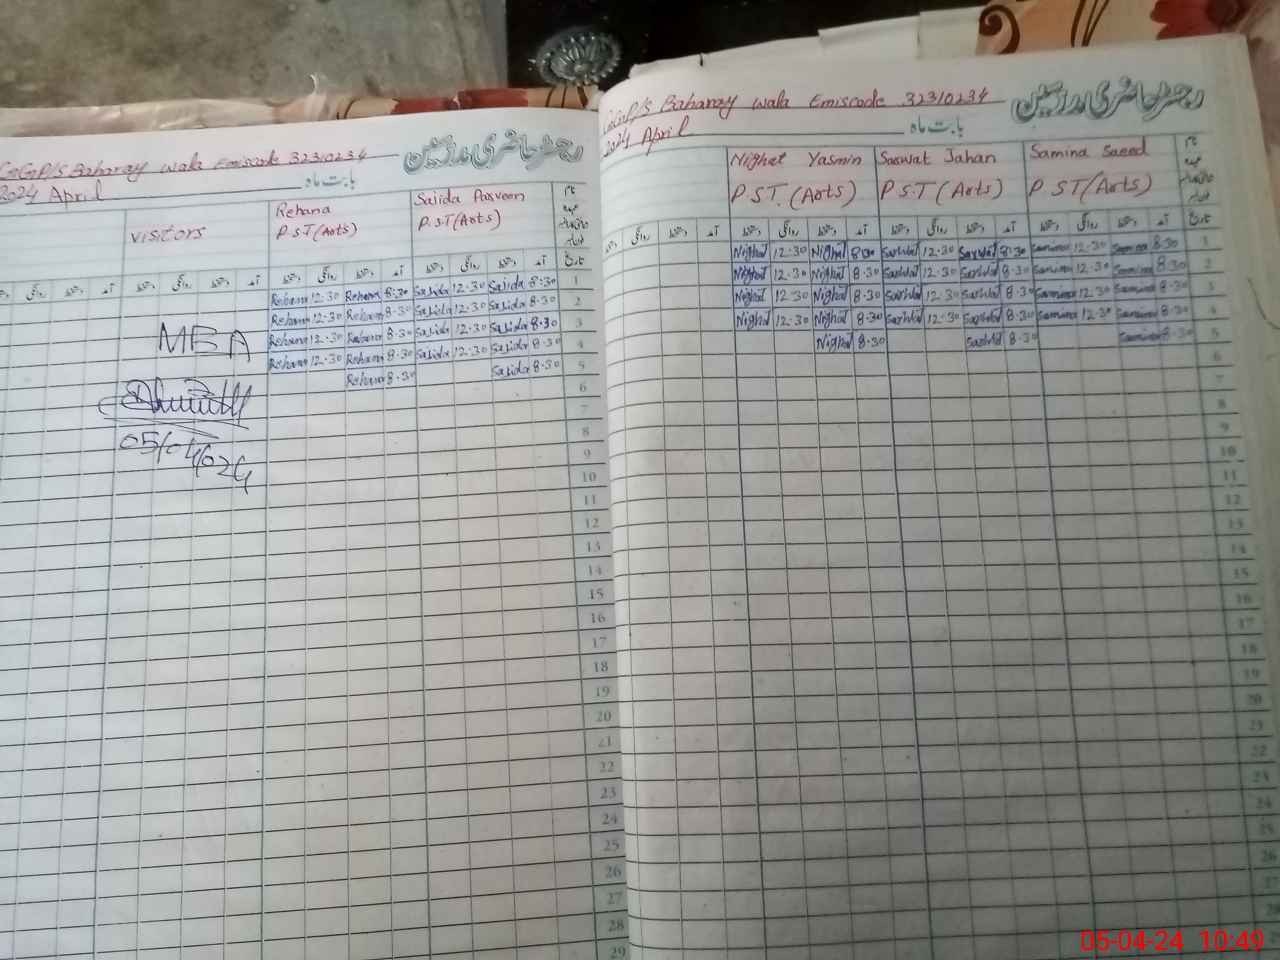 GGP/S Baharay wala Emiscode 32310234
رجسٹر حاضری مدرسین
2024 April
بابت ماہ
visitors
Rehana
P.S.T(Arts)
Sajida Parveen
P.S.T(Arts)
روانگی دستخط آمد دستخط روانگی دستخط آمد دستخط روانگی دستخط آمد تاریخ
Rehana 12.30 Rehana 8.30 Sajida 12.30 Sajida 8.30 1
Rehana 12.30 Rehana 8.30 Sajida 12.30 Sajida 8.30 2
Rehana 12.30 Rehana 8.30 Sajida 12.30 Sajida 8.30 3
Rehana 12.30 Rehana 8.30 Sajida 12.30 Sajida 8.30 4
Rehana 8.30 Sajida 8.30 5
MEA
05/04/024
6
7
8
9
10
11
12
13
14
15
16
17
18
19
20
21
22
23
24
25
26
27
28
29
GGP/S Baharay wala Emiscode 32310234
رجسٹر حاضری مدرسین
2024 April
بابت ماہ
Nighat Yasmin
P.S.T.(Arts)
Sarwat Jahan
P.S.T(Arts)
Samina Saeed
P.S.T(Arts)
نام
عہدہ
روانگی دستخط آمد دستخط روانگی دستخط آمد دستخط روانگی دستخط آمد دستخط روانگی دستخط آمد تاریخ
Nighat 12.30 Nighat 8.30 Sarwat 12.30 Sarwat 8.30 Samina 12.30 Samina 8.30 1
Nighat 12.30 Nighat 8.30 Sarwat 12.30 Sarwat 8.30 Samina 12.30 Samina 8.30 2
Nighat 12.30 Nighat 8.30 Sarwat 12.30 Sarwat 8.30 Samina 12.30 Samina 8.30 3
Nighat 12.30 Nighat 8.30 Sarwat 12.30 Sarwat 8.30 Samina 12.30 Samina 8.30 4
Nighat 8.30 Sarwat 8.30 Samina 8.30 5
6
7
8
9
10
11
12
13
14
15
16
17
18
19
20
21
22
23
24
25
26
27
05-04-24 10:49